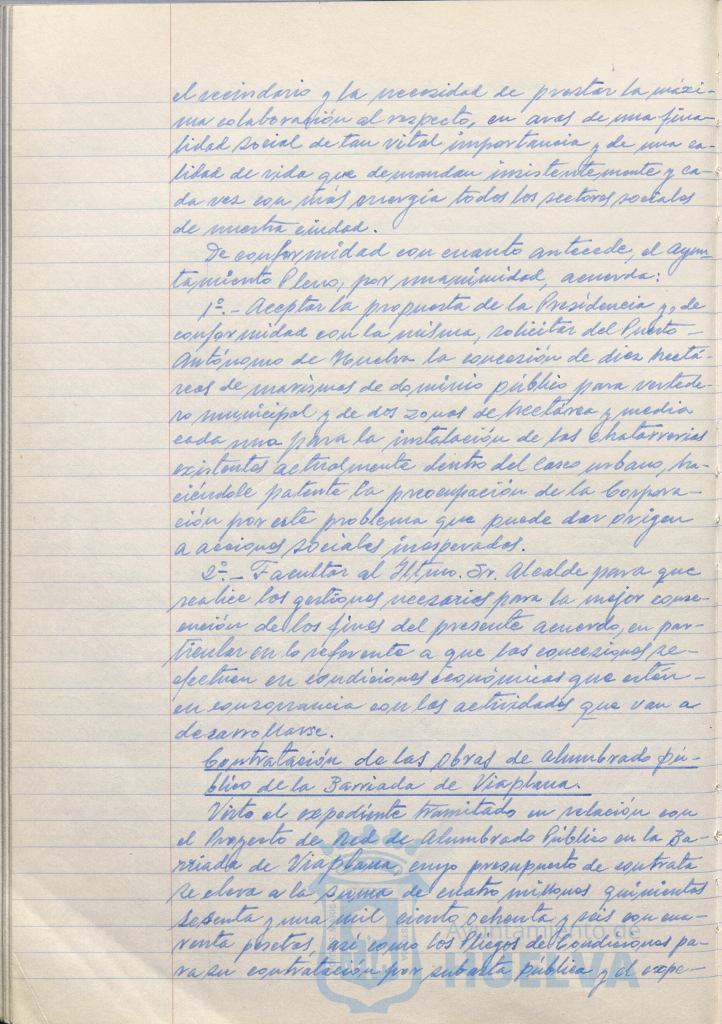 el vecindario y la necesidad de prestar la máxi-
ma colaboración al respecto, en aras de una fina-
lidad social de tan vital importancia y de una ca-
lidad de vida que demandan insistentemente y ca-
da vez con más energía todos los sectores sociales
de nuestra ciudad.
De conformidad con cuanto antecede, el Ayun-
tamiento Pleno, por unanimidad, acuerda:
1º.- Aceptar la propuesta de la Presidencia y, de
conformidad con la misma, solicitar del Puerto
Autónomo de Huelva la concesión de diez hectá-
reas de marismas de dominio público para vertede-
ro municipal y de dos zonas de hectárea y media
cada una para la instalación de las chatarrerias
existentes actualmente dentro del casco urbano, ha-
ciéndole patente la preocupación de la Corpora-
ción por este problema que puede dar origen
a acciones sociales inesperadas.
2º.- Facultar al Iltmo. Sr. Alcalde para que
realice las gestiones necesarias para la mejor conse-
cución de los fines del presente acuerdo, en par-
ticular en lo referente a que las concesiones se
efectuen en condiciones económicas que estén
en consonancia con las actividades que van a
desarrollarse.
Contratación de las obras de alumbrado pú-
blico de la Barriada de Viaplana.
Visto el expediente tramitado en relación con
el Proyecto de Red de Alumbrado Público en la Ba-
rriada de Viaplana, cuyo presupuesto de contrata
se eleva a la suma de cuatro millones quinientas
sesenta y una mil ciento ochenta y seis con cua-
renta pesetas, así como los Pliegos de Condiciones pa-
ra su contratación por subasta pública y el expe-
Ayuntamiento de
HUELVA